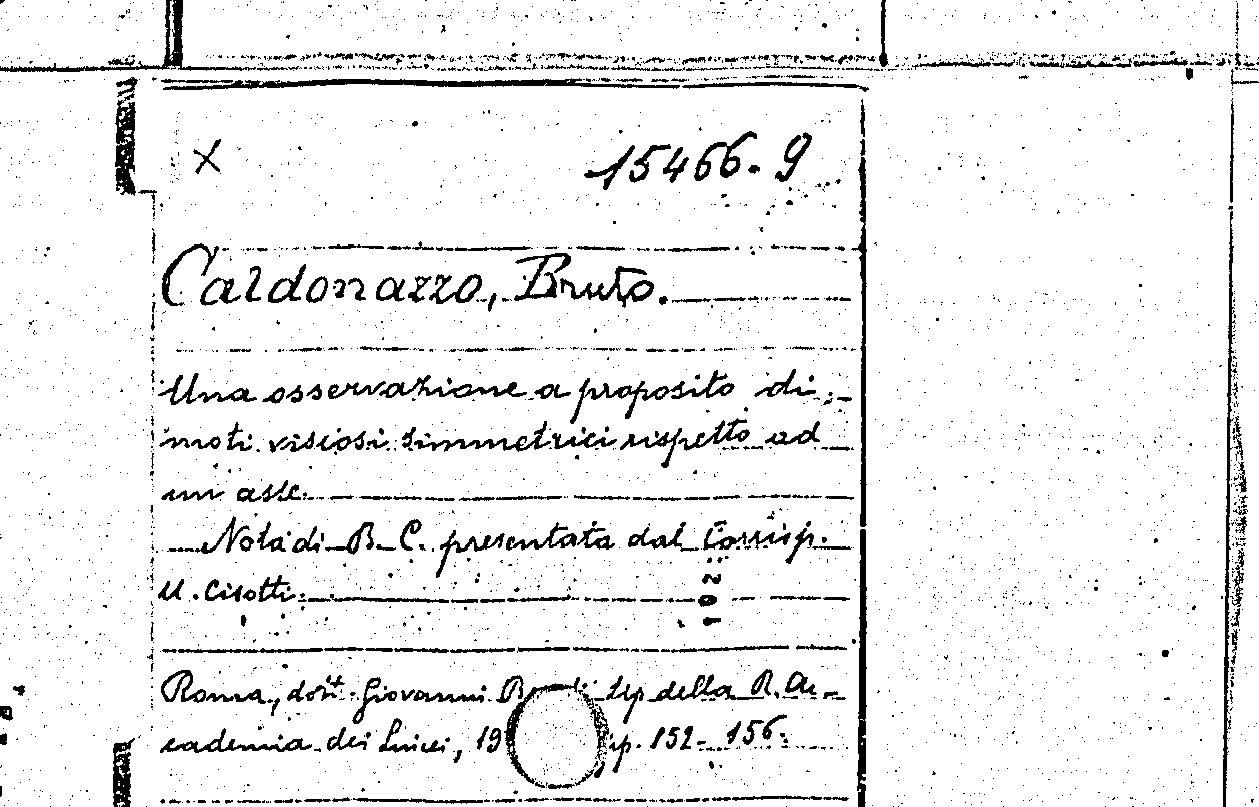 X
15466.9
Caldonazzo, Bruto.
Una osservazione a proposito di
moti viscosi simmetrici rispetto ad
un asse.
Nota di B. C. presentata dal Corrisp.
U. Cisotti.
Roma, dott. Giovanni tip della R. Ac-
cademia dei Lincei, 19 pp. 152-156.